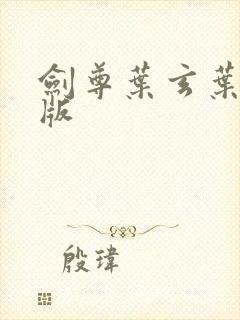 劍尊葉玄葉
版
殷瑋